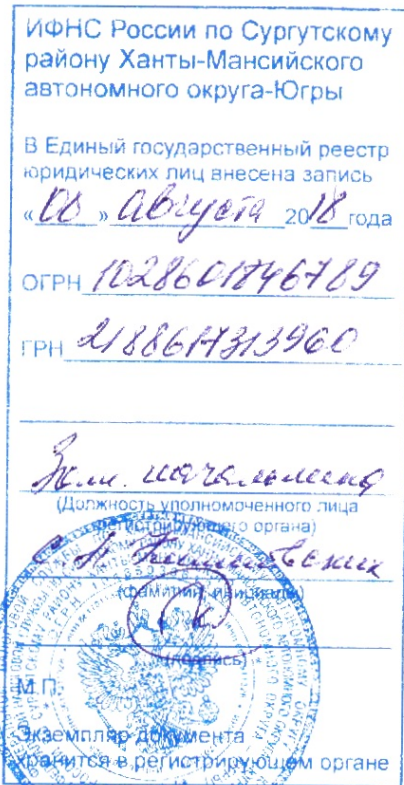 ИФНС России по Сургутскому
району Ханты-Мансийского
автономного округа-Югры
В Единый государственный реестр
юридических лиц внесена запись
«06» августа 2018 года
ОГРН 1028601846789
ГРН 2188617313960
Зам. начальника
(Должность уполномоченного лица
регистрирующего органа)
С.А.
(фамилия, инициалы)
(подпись)
М.П.
Экземпляр документа
хранится в регистрирующем органе